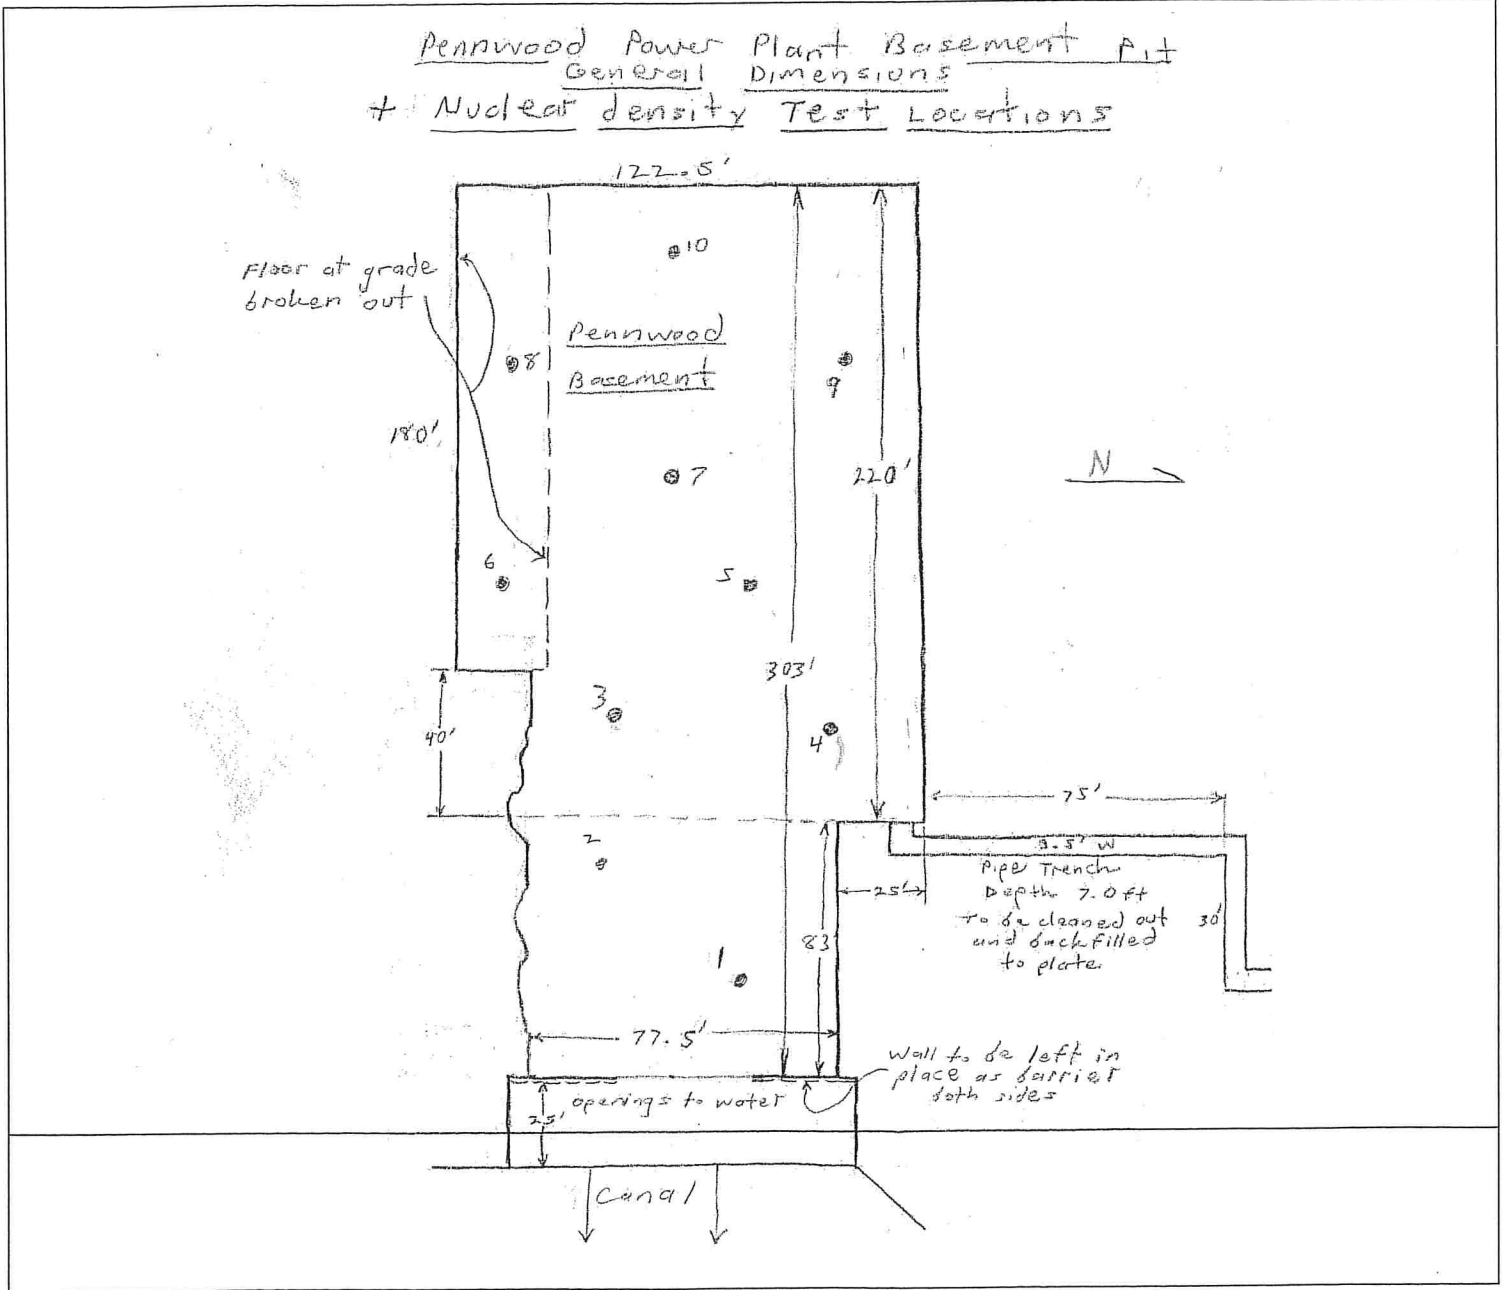 Pennwood Power Plant Basement Pit
General Dimensions
+ Nuclear density Test Locations
122.5'
10
Floor at grade
broken out
Pennwood
Basement
8
9
180'
7
220'
N
6
5
303'
3
40'
4
75'
2
3.5' W
Pipe Trench
Depth 7.0 ft
25'
to be cleaned out
30'
and backfilled
83'
to plate
1
77.5'
Wall to be left in
place as barrier
both sides
openings to water
25'
Canal